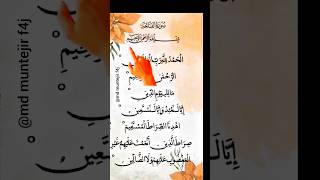 سُورَةُ الفَاتِحَة
بِسْمِ اللَّهِ الرَّحْمَٰنِ الرَّحِيمِ
الْحَمْدُ لِلَّهِ رَبِّ الْعَالَمِينَ
الرَّحْمَٰنِ
مَالِكِ يَوْمِ الدِّينِ
إِيَّاكَ نَعْبُدُ وَإِيَّاكَ نَسْتَعِينُ
اهْدِنَا الصِّرَاطَ الْمُسْتَقِيمَ
صِرَاطَ الَّذِينَ أَنْعَمْتَ عَلَيْهِمْ غَيْرِ
الْمَغْضُوبِ عَلَيْهِمْ وَلَا الضَّالِّينَ
@md muntejir f4j
@md muntejir f4j